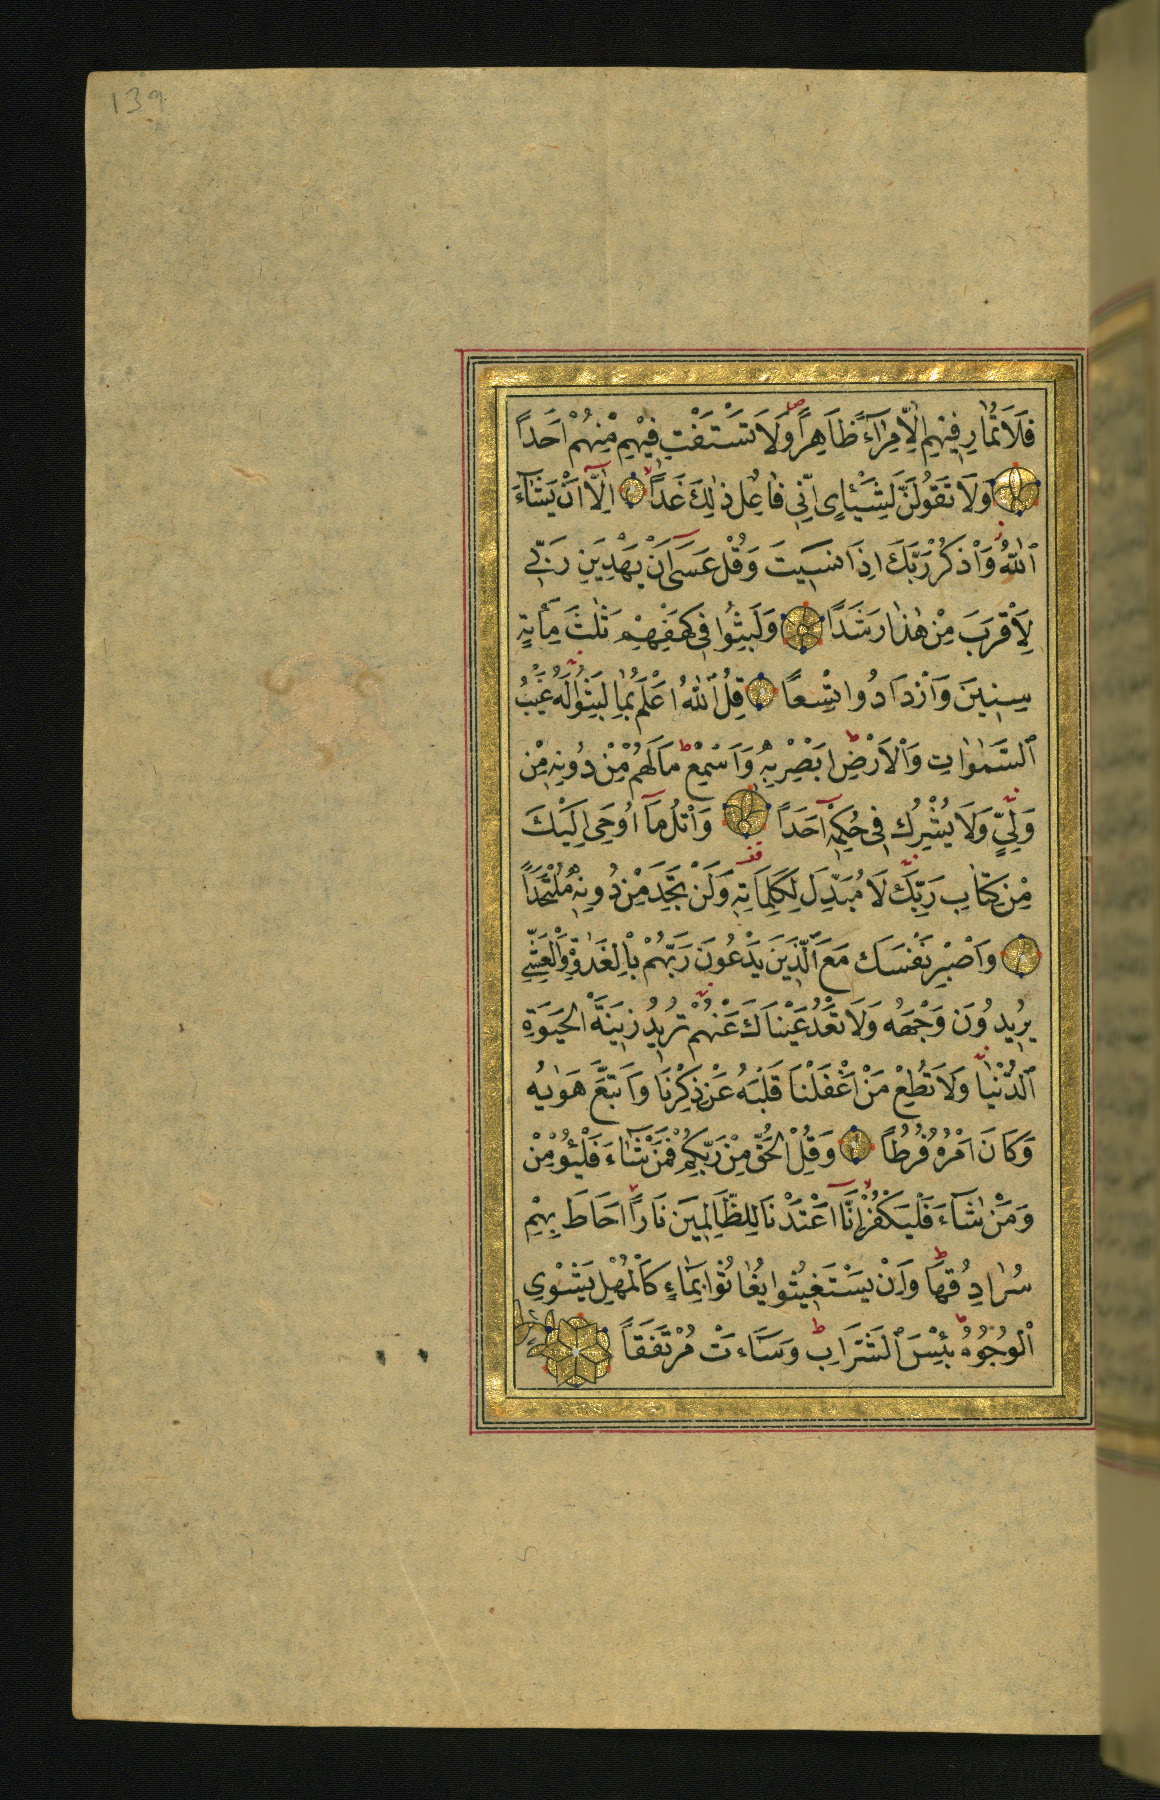 139
فَلَا تُمَارِ فِيهِمْ اِلَّا مِرَآءً ظَاهِرًا وَلَا تَسْتَفْتِ فِيهِمْ مِنْهُمْ اَحَدًا
وَلَا تَقُولَنَّ لِشَىْءٍ اِنِّى فَاعِلٌ ذٰلِكَ غَدًا اِلَّآ اَنْ يَشَآءَ
ٱللّٰهُ وَاذْكُرْ رَبَّكَ اِذَا نَسِيتَ وَقُلْ عَسٰىٓ اَنْ يَهْدِيَنِ رَبِّى
لِاَقْرَبَ مِنْ هٰذَا رَشَدًا وَلَبِثُوا فِى كَهْفِهِمْ ثَلٰثَ مِائَةٍ
سِنِينَ وَازْدَادُوا تِسْعًا قُلِ ٱللّٰهُ اَعْلَمُ بِمَا لَبِثُوا لَهُ غَيْبُ
ٱلسَّمٰوَاتِ وَالْاَرْضِ اَبْصِرْ بِهِ وَاَسْمِعْ مَا لَهُمْ مِنْ دُونِهِ مِنْ
وَلِىٍّ وَلَا يُشْرِكُ فِى حُكْمِهِٓ اَحَدًا وَاتْلُ مَآ اُوحِىَ اِلَيْكَ
مِنْ كِتَابِ رَبِّكَ لَا مُبَدِّلَ لِكَلِمَاتِهِ وَلَنْ تَجِدَ مِنْ دُونِهِ مُلْتَحَدًا
وَاصْبِرْ نَفْسَكَ مَعَ ٱلَّذِينَ يَدْعُونَ رَبَّهُمْ بِالْغَدٰوةِ وَالْعَشِىِّ
يُرِيدُونَ وَجْهَهُ وَلَا تَعْدُ عَيْنَاكَ عَنْهُمْ تُرِيدُ زِينَةَ الْحَيٰوةِ
ٱلدُّنْيَا وَلَا تُطِعْ مَنْ اَغْفَلْنَا قَلْبَهُ عَنْ ذِكْرِنَا وَاتَّبَعَ هَوٰيهُ
وَكَانَ اَمْرُهُ فُرُطًا وَقُلِ الْحَقُّ مِنْ رَبِّكُمْ فَمَنْ شَآءَ فَلْيُؤْمِنْ
وَمَنْ شَآءَ فَلْيَكْفُرْ اِنَّآ اَعْتَدْنَا لِلظَّالِمِينَ نَارًا اَحَاطَ بِهِمْ
سُرَادِقُهَا وَاِنْ يَسْتَغِيثُوا يُغَاثُوا بِمَآءٍ كَالْمُهْلِ يَشْوِى
ٱلْوُجُوهُ بِئْسَ ٱلشَّرَابِ وَسَآءَتْ مُرْتَفَقًا